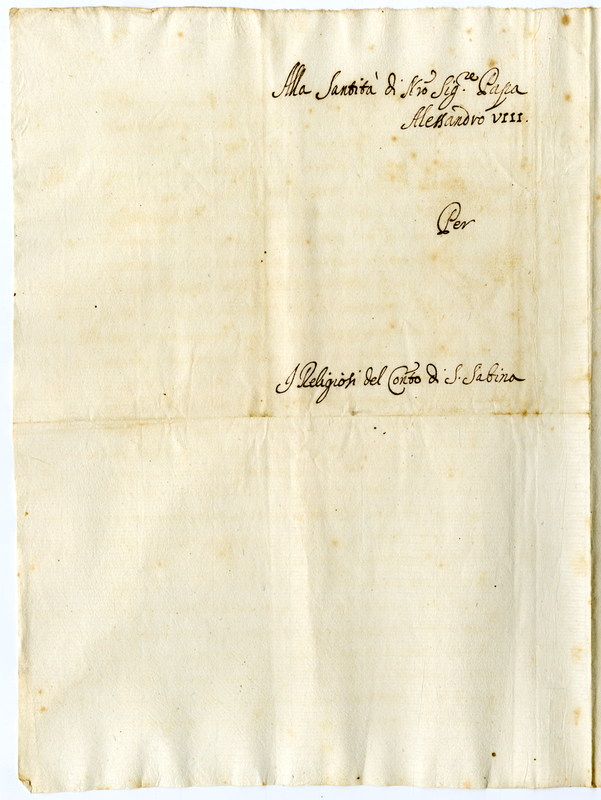 Alla Santità di Nro Sig.re Papa
Alessandro VIII.
Per
I Religiosi del Conto di S. Sabina